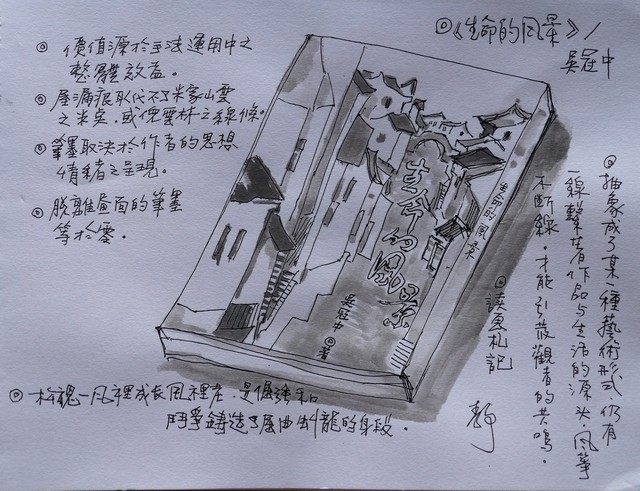 ◎《生命的風景》/
吳冠中
◎ 價值源於手法運用中之
整體效益。
◎ 屋漏痕取代不了米家山雲
之米点,或倪雲林之線條。
◎ 筆墨取決於作者的思想
情緒之呈現。
◎ 脫離畫面的筆墨
等於零。
生命的風景
生命的風景
吳冠中◎著
◎抽象成了某一種藝術形式,仍有
一線繫著作品与生活的源头,風箏
不断線,才能引發觀者的共鳴。
◎讀札記
靜
◎ 松魂一風裡成長風裡老,是倔強和
鬥爭鑄造了屈曲虬龍的身段。